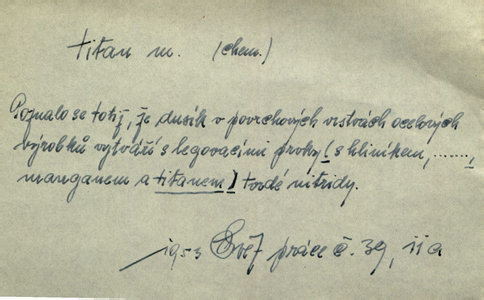 titan m. (chem.)
Poznalo se totiž, že dusík v povrchových vrstvách ocelových
výrobků vytváží s legovacími prvky (s hliníkem, .......,
manganem a titanem) tvrdé nitridy.
1953 Svět práce č. 39, 11a